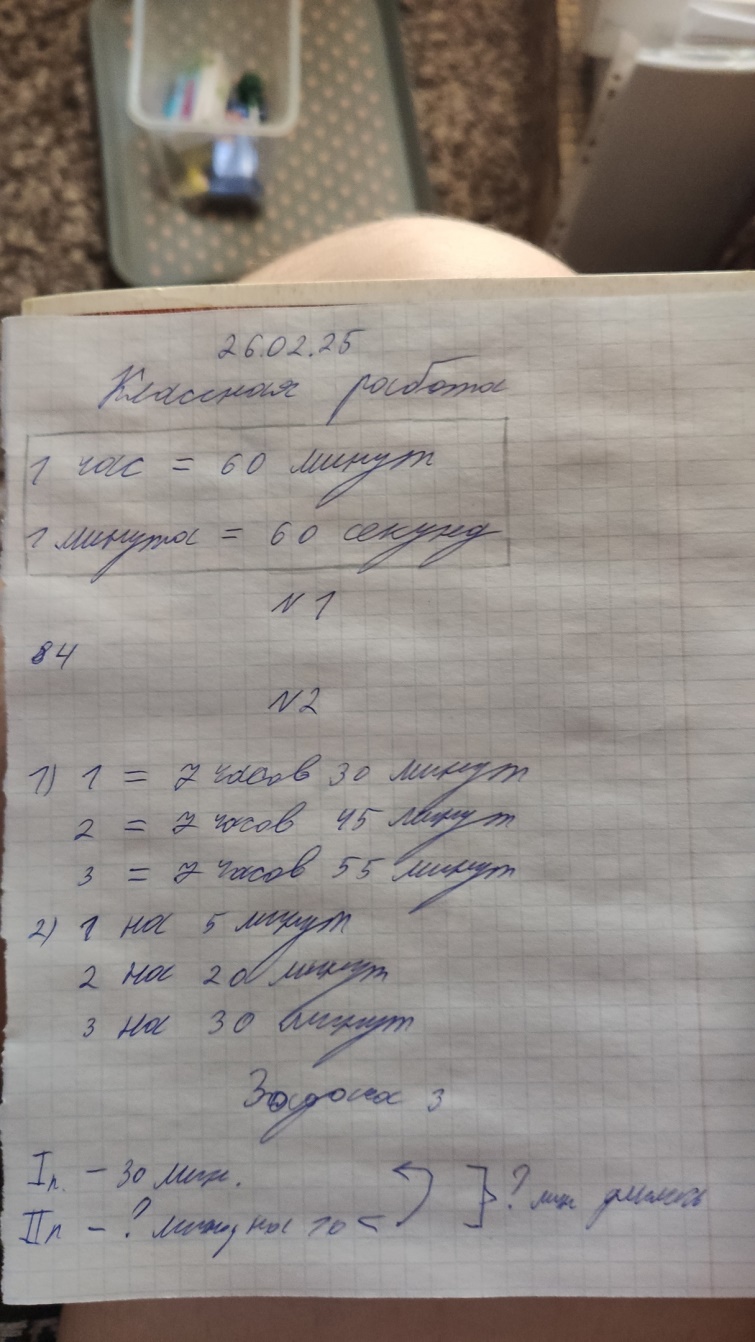 26.02.25
Классная работа
1 час = 60 минут
1 минута = 60 секунд
N 1
84
N2
1) 1 = 7 часов 30 минут
2 = 7 часов 45 минут
3 = 7 часов 55 минут
2) 1 на 5 минут
2 на 20 минут
3 на 30 минут
Задача 3
I п. - 30 мин.
II п - ? мин, на 10 < } ? мин длилось